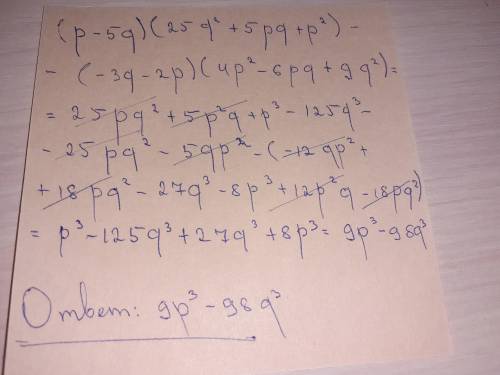 (p-5q)(25q²+5pq+p²)-
-(-3q-2p)(4p²-6pq+9q²)=
=25pq²+5p²q+p³-125q³-
-25pq²-5qp²-(-12qp²+
+18pq²-27q³-8p³+12p²q-18pq²)
=p³-125q³+27q³+8p³=9p³-98q³
Ответ: 9p³-98q³